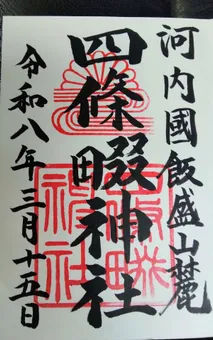 河内國飯盛山麓
四條畷神社
令和八年三月十五日